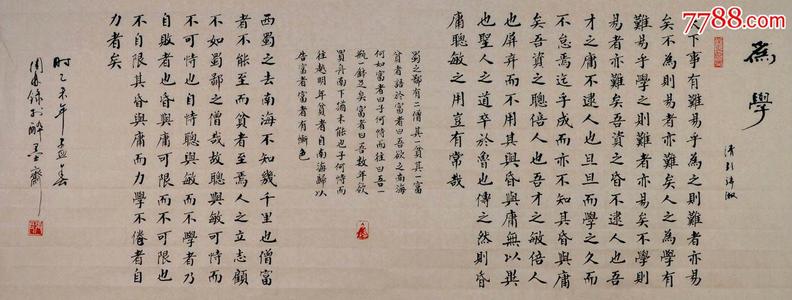 7788.com
為學
清彭端淑
天下事有難易乎為之則難者亦易
矣不為則易者亦難矣人之為學有
難易乎學之則難者亦易矣不學則
易者亦難矣吾資之昏不逮人也吾
才之庸不逮人也旦旦而學之久而
不怠焉迄乎成而亦不知其昏與庸
矣吾資之聰倍人也吾才之敏倍人
也屏弃而不用其與昏與庸無以異
也聖人之道卒於魯也傳之然則昏
庸聰敏之用豈有常哉
蜀之鄙有二僧其一貧其一富
貧者語於富者曰吾欲之南海
何如富者曰子何恃而往曰吾一
瓶一鉢足矣富者曰吾數年欲
買舟南下猶未能也子何恃而
往越明年貧者自南海歸以
告富者富者有慚色
西蜀之去南海不知幾千里也僧富
者不能至而貧者至焉人之立志顧
不如蜀鄙之僧哉故聰與敏可恃而
不可恃也自恃聰與敏而不學者乃
自敗者也昏與庸可限而不可限也
不自限其昏與庸而力學不倦者自
力者矣
時乙未年孟春
周錄於醉墨齋